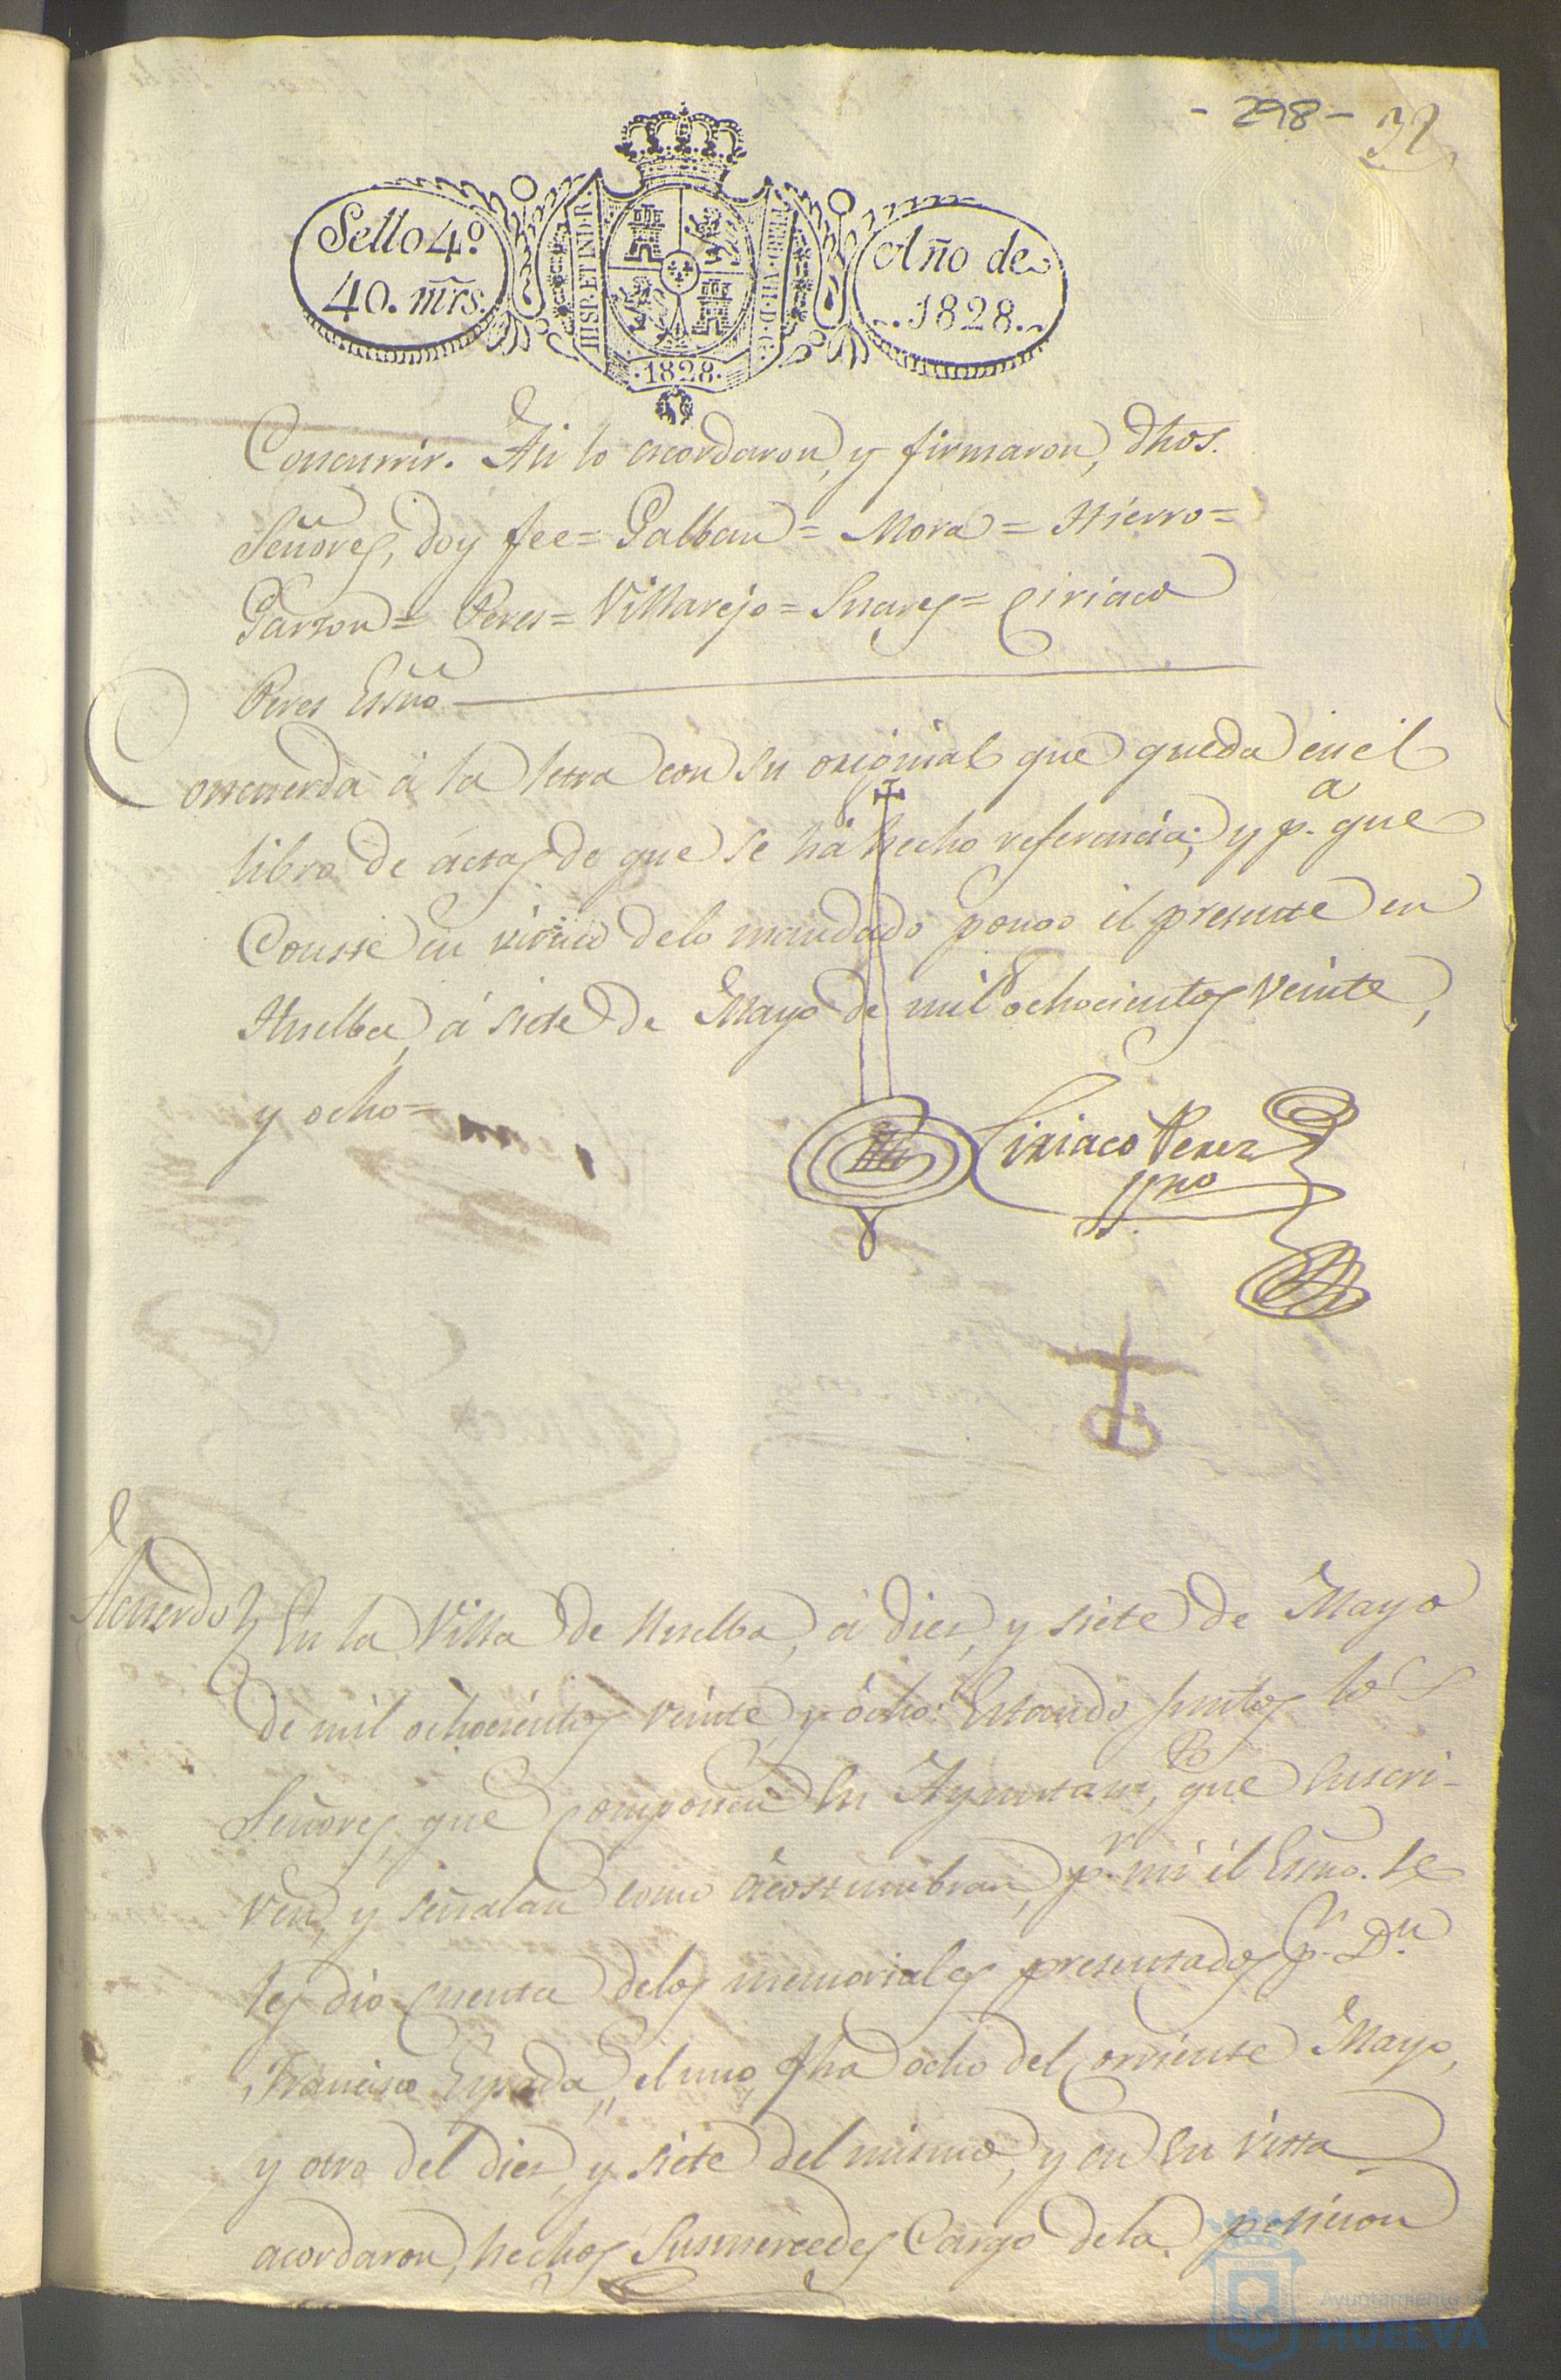 - 298 - 32
Sello 4º
40. mrs.
HISP. ET IND. R.
Año de
1828.
·1828·
Concurrir. Asi lo acordaron, y firmaron, dhos.
Señores, doy fee = Galban = Mora = Hierro =
Garzon = Peres = Villarejo = Suares = Ciriaco
Peres Essno
Concuerda à la letra con su original que queda en el
libro de actas de que se há hecho referencia; y p.a que
Conste en virtud delo mandado pongo el presente en
Huelba, á siete de Mayo de mil ochocientos veinte,
y ocho =
Ciriaco Perez
Acuerdo En la Villa de Huelba, à dies, y siete de Mayo
de mil ochocientos veinte, y ócho: Estando juntos los
Señores, que componen su Ayuntam.to, que suscri-
ven, y señalan como acostumbran, p.r mi el Essno. se
les dio cuenta delos memoriales presentados p.r D.n
Francisco Espada, el uno fha ocho del corriente Mayo,
y otro del dies, y siete del mismo, y en su vista
acordaron, hechos Susmercedes Cargo dela peticion
Ayuntamiento de
HUELVA